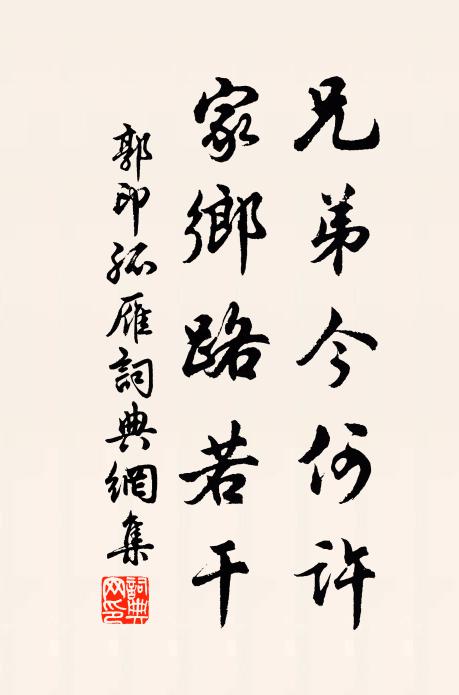 兄弟今何許
家鄉路若干
郭印孤雁詞典網集
詞典網印